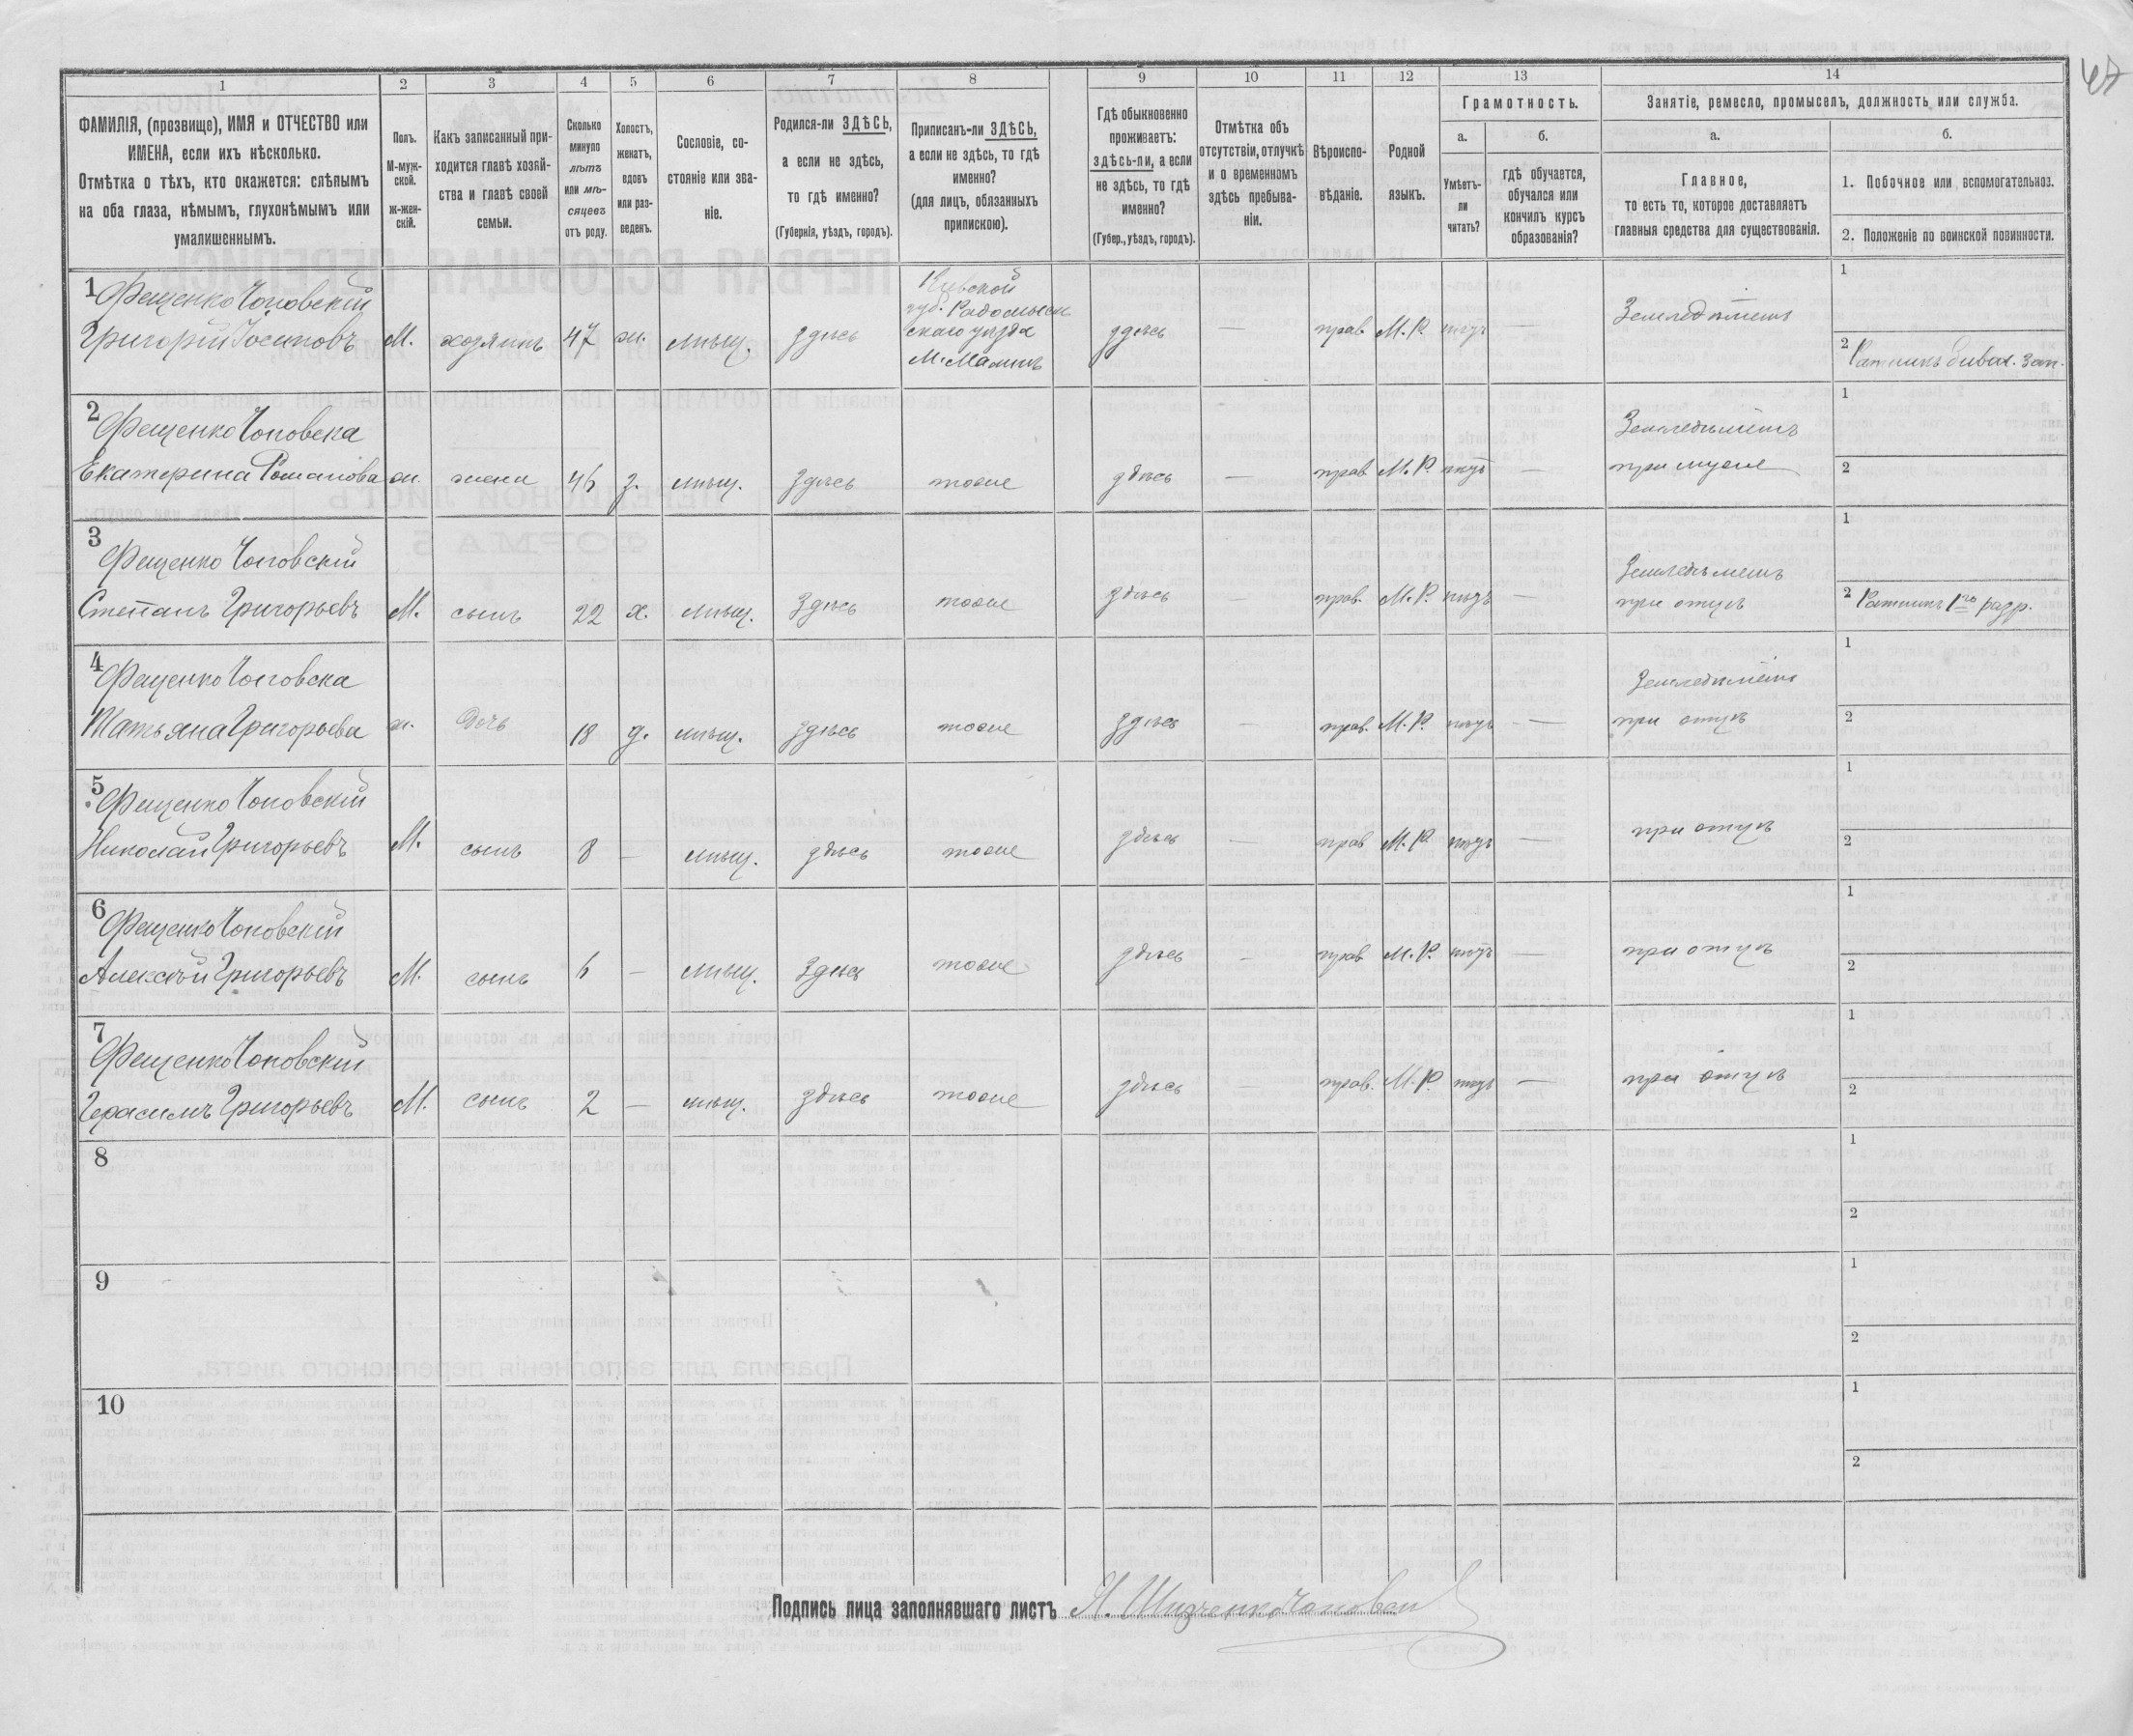 47
1 2 3 4 5 6 7 8 9 10 11 12 13 14
ФАМИЛІЯ, (прозвище), ИМЯ и ОТЧЕСТВО или
ИМЕНА, если ихъ нѣсколько.
Отмѣтка о тѣхъ, кто окажется: слѣпымъ
на оба глаза, нѣмымъ, глухонѣмымъ или
умалишеннымъ.
Полъ.
М-муж-
ской.
ж-жен-
скій.
Какъ записанный при-
ходится главѣ хозяй-
ства и главѣ своей
семьи.
Сколько
минуло
лѣтъ
или мѣ-
сяцевъ
отъ роду.
Холостъ,
женатъ,
вдовъ
или раз-
веденъ.
Сословіе, со-
стояніе или зва-
ніе.
Родился-ли ЗДѢСЬ,
а если не здѣсь,
то гдѣ именно?
(Губернія, уѣздъ, городъ).
Приписанъ-ли ЗДѢСЬ,
а если не здѣсь, то гдѣ
именно?
(для лицъ, обязанныхъ
припискою).
Гдѣ обыкновенно
проживаетъ:
здѣсь-ли, а если
не здѣсь, то гдѣ
именно?
(Губер., уѣздъ, городъ).
Отмѣтка объ
отсутствіи, отлучкѣ
и о временномъ
здѣсь пребыва-
ніи.
Вѣроиспо-
вѣданіе.
Родной
языкъ.
Грамотность.
а. б.
Умѣетъ-
ли
читать?
гдѣ обучается,
обучался или
кончилъ курсъ
образованія?
Занятіе, ремесло, промыселъ, должность или служба.
а. б.
Главное,
то есть то, которое доставляетъ
главныя средства для существованія.
1. Побочное или вспомогательное.
2. Положеніе по воинской повинности.
1 Фещенко Чоповскій
Григорій Іосиповъ М. хозяинъ 47 ж. мѣщ. здѣсь
Кіевской
губ. Радомысль
скаго уѣзда
М. Малинъ
здѣсь — прав М. Р. нѣтъ —
Земледѣлецъ
1
2 Ратникъ
2 Фещенко Чоповска
Екатерина Романова ж. жена 46 з. мѣщ. здѣсь тоже здѣсь — прав М. Р. нѣтъ —
Земледѣлецъ
при мужѣ
1
2
3 Фещенко Чоповскій
Степанъ Григорьевъ М. сынъ 22 х. мѣщ. здѣсь тоже здѣсь — прав. М. Р. нѣтъ —
Земледѣлецъ
при отцѣ
1
2 Ратникъ 1го разр.
4 Фещенко Чоповска
Татьяна Григорьева ж. дочь 18 д. мѣщ. здѣсь тоже здѣсь — прав. М. Р. нѣтъ —
Земледѣлецъ
при отцѣ
1
2
5 Фещенко Чоповскій
Николай Григорьевъ М. сынъ 8 — мѣщ. здѣсь тоже здѣсь — прав М. Р. нѣтъ — при отцѣ
1
2
6 Фещенко Чоповскій
Алексѣй Григорьевъ М. сынъ 6 — мѣщ. здѣсь тоже здѣсь — прав М. Р. нѣтъ — при отцѣ
1
2
7 Фещенко Чоповскій
Герасимъ Григорьевъ М. сынъ 2 — мѣщ. здѣсь тоже здѣсь — прав. М. Р. нѣтъ — при отцѣ
1
2
8
1
2
9
1
2
10
1
2
Подпись лица заполнявшаго листъ